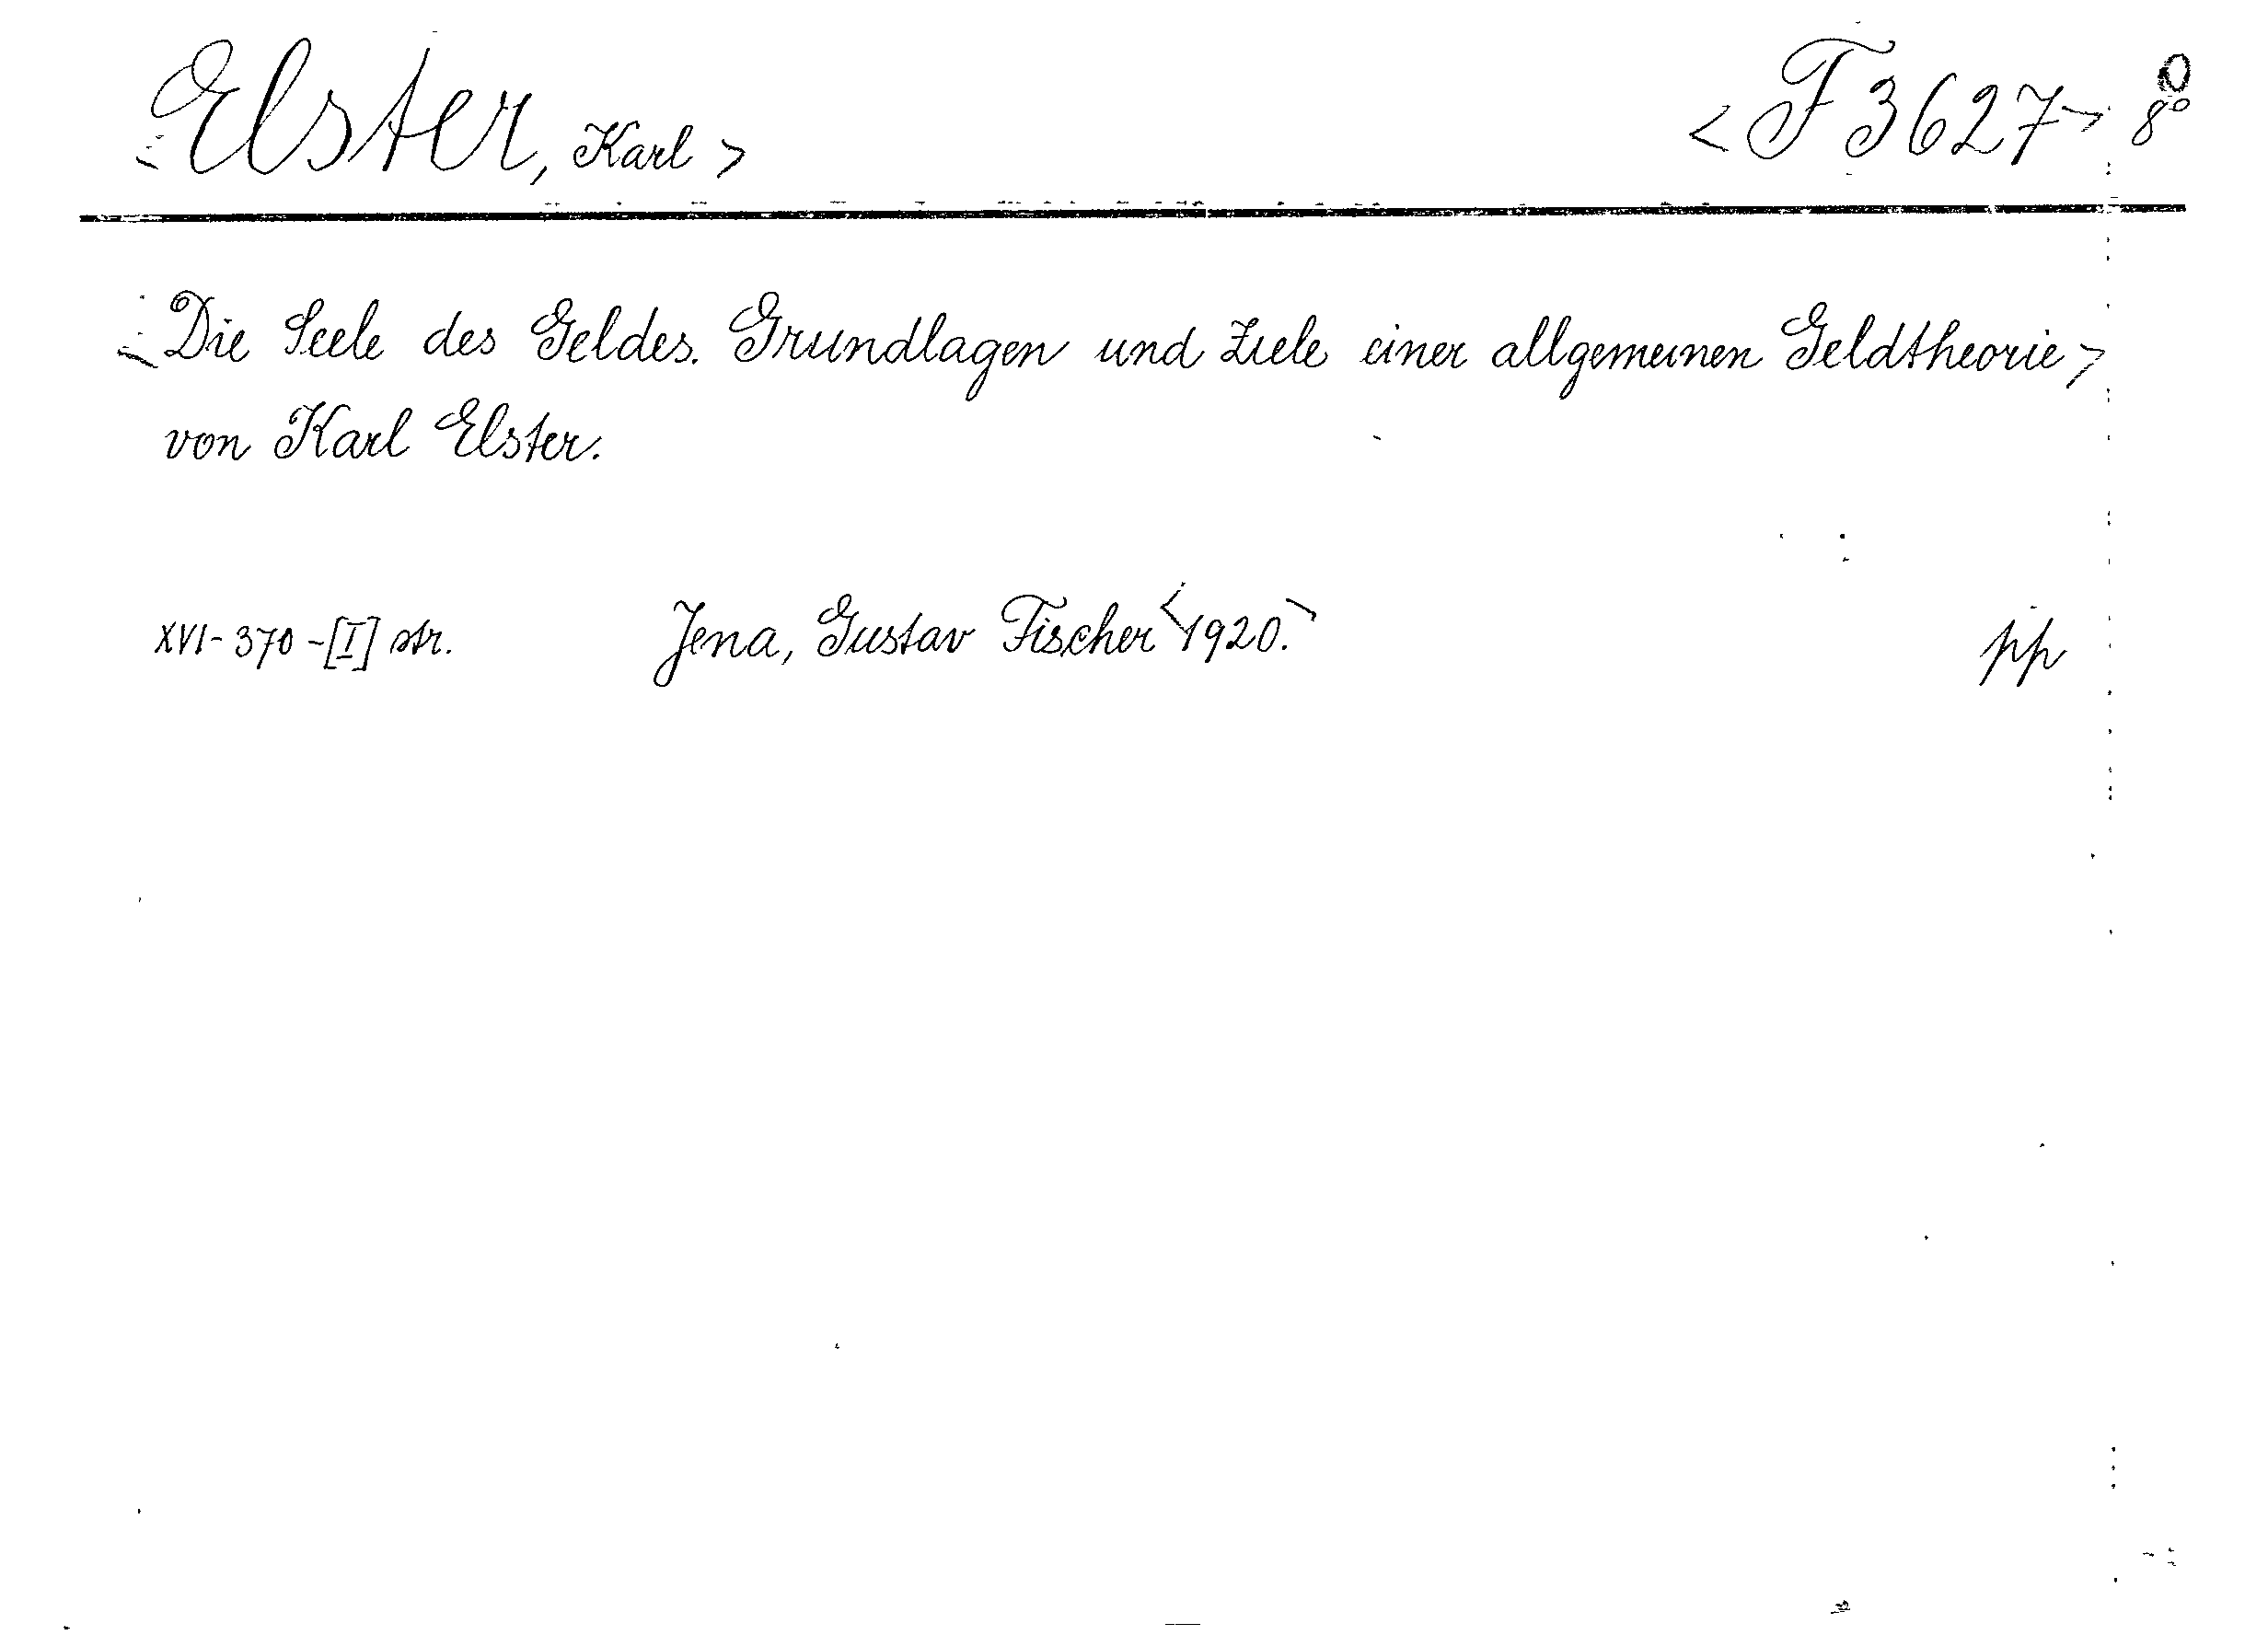 <Elster, Karl> <F 3627> 8°
<Die Seele des Geldes. Grundlagen und Ziele einer allgemeinen Geldtheorie>
von Karl Elster.
XVI-370-[I] str. Jena, Gustav Fischer <1920.> pp